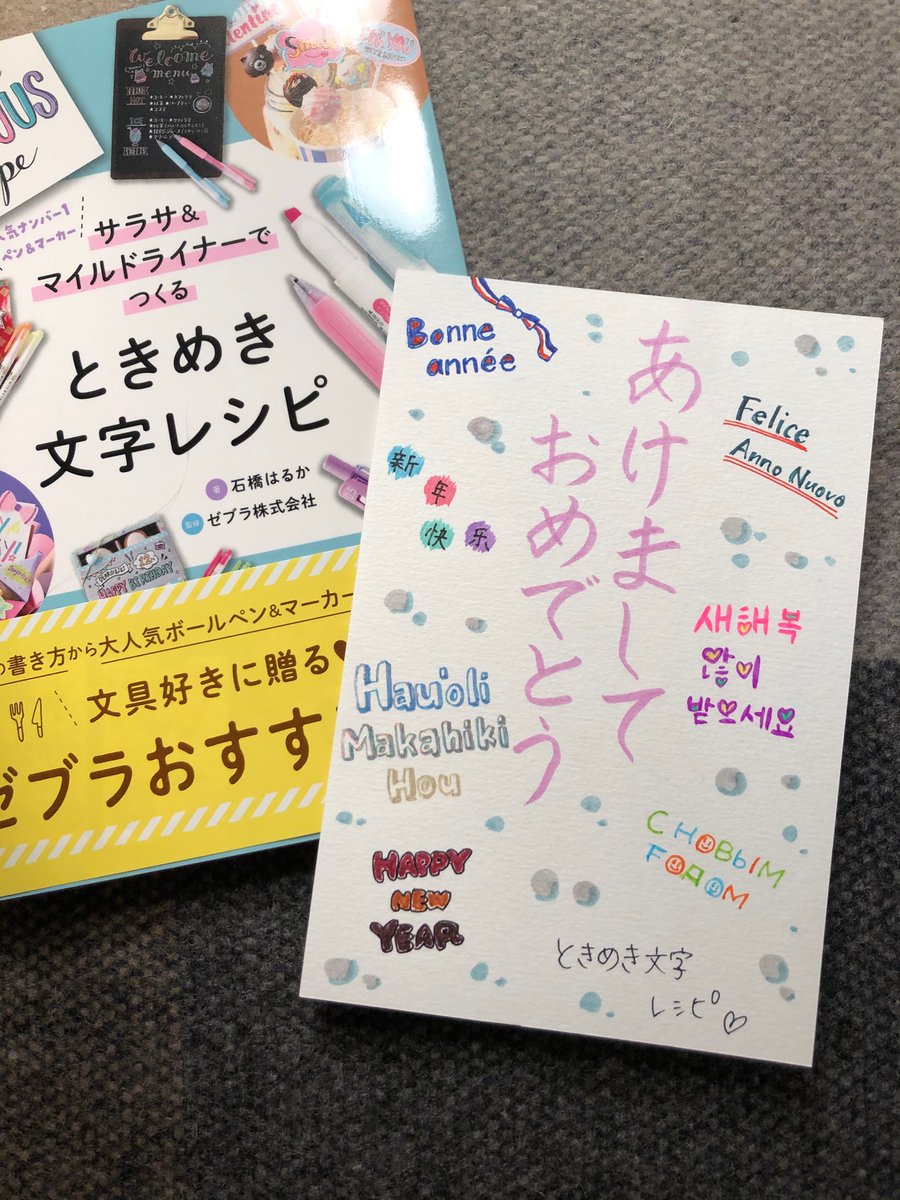 Welcome
menu
サラサ&
マイルドライナーで
つくる
ときめき
文字レシピ
著 石橋はるか
監修 ゼブラ株式会社
HAPPY BIRTHDAY
の書き方から大人気ボールペン&マーカー
文具好きに贈る
ゼブラおすす
Bonne
année
あけまして
おめでとう
Felice
Anno Nuovo
新
年
快 乐
새해 복
많이
받으세요
Hau'oli
Makahiki
Hou
С НОВЫМ
ГОДОМ
HAPPY
NEW
YEAR
ときめき文字
レシピ♡